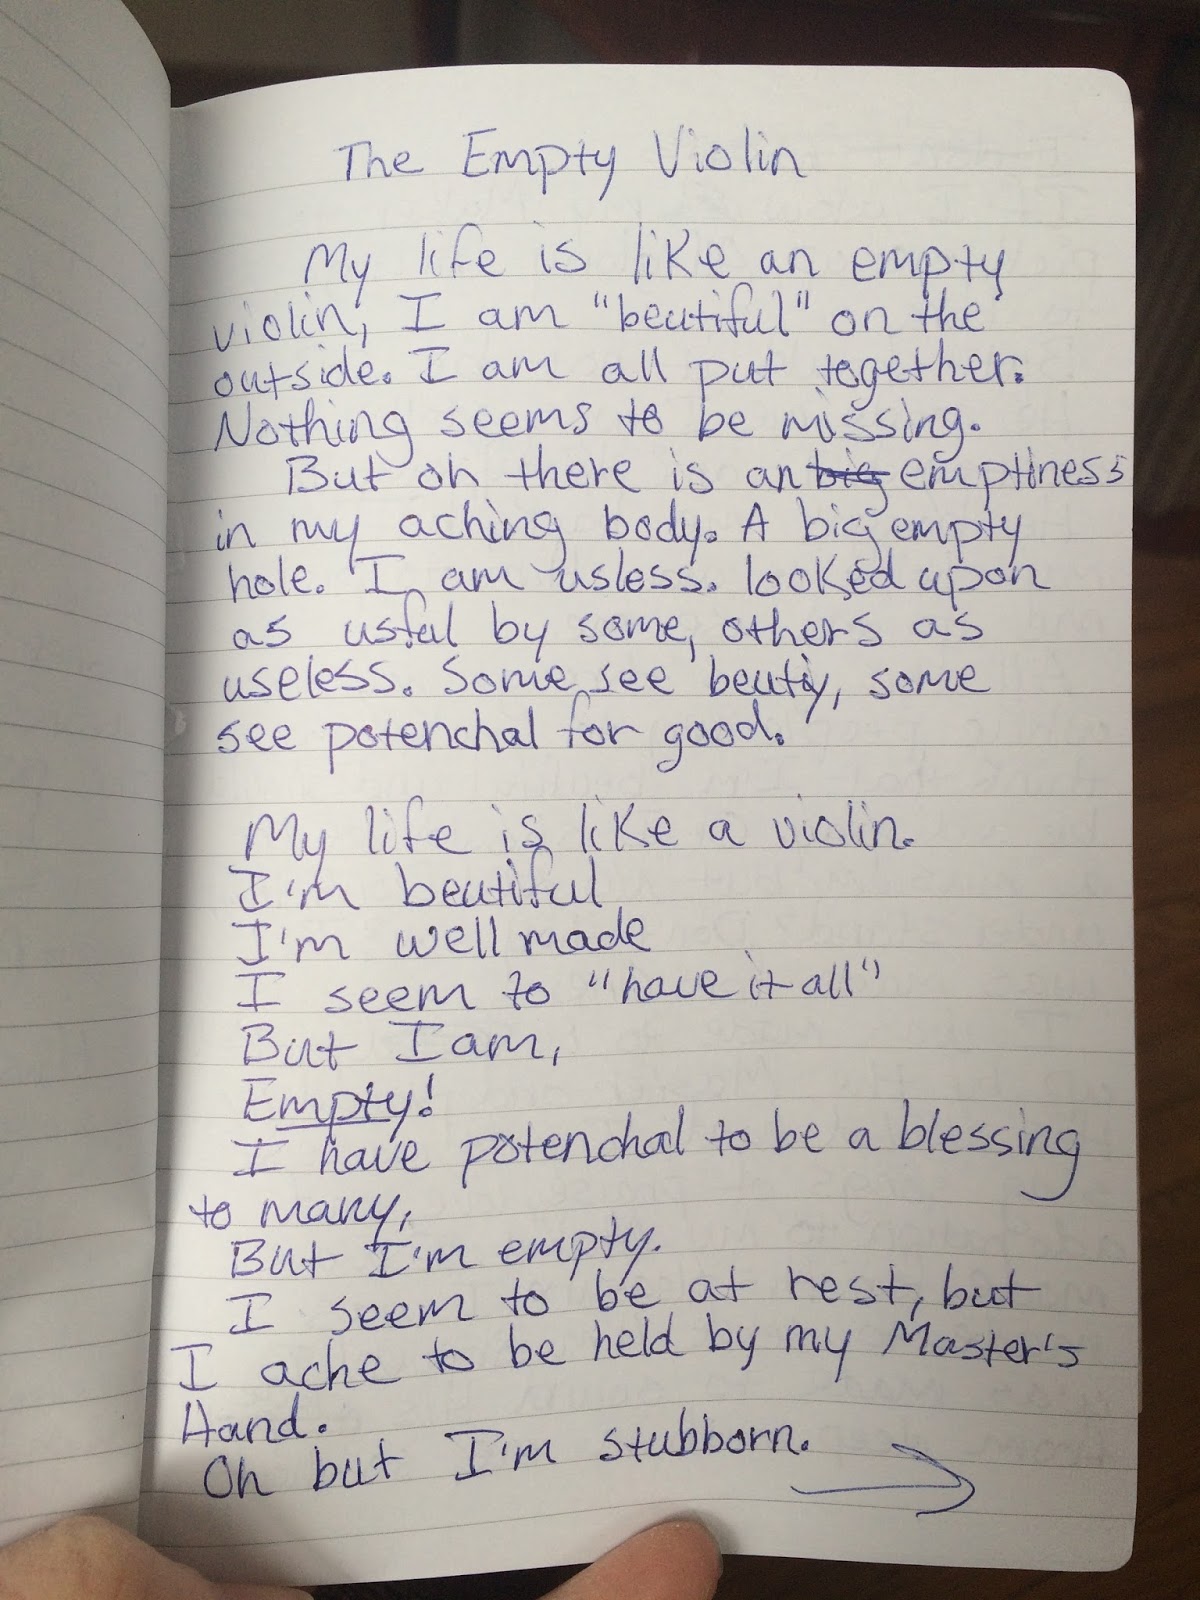 The Empty Violin
My life is like an empty
violin, I am "beutiful" on the
outside. I am all put together.
Nothing seems to be missing.
But oh there is an big emptiness
in my aching body. A big empty
hole. I am usless. looked upon
as usful by some, others as
useless. Some see beuty, some
see potenchal for good.
My life is like a violin.
I'm beutiful
I'm well made
I seem to "have it all"
But I am,
Empty!
I have potenchal to be a blessing
to many,
But I'm empty.
I seem to be at rest, but
I ache to be held by my Master's
Hand.
Oh but I'm stubborn.